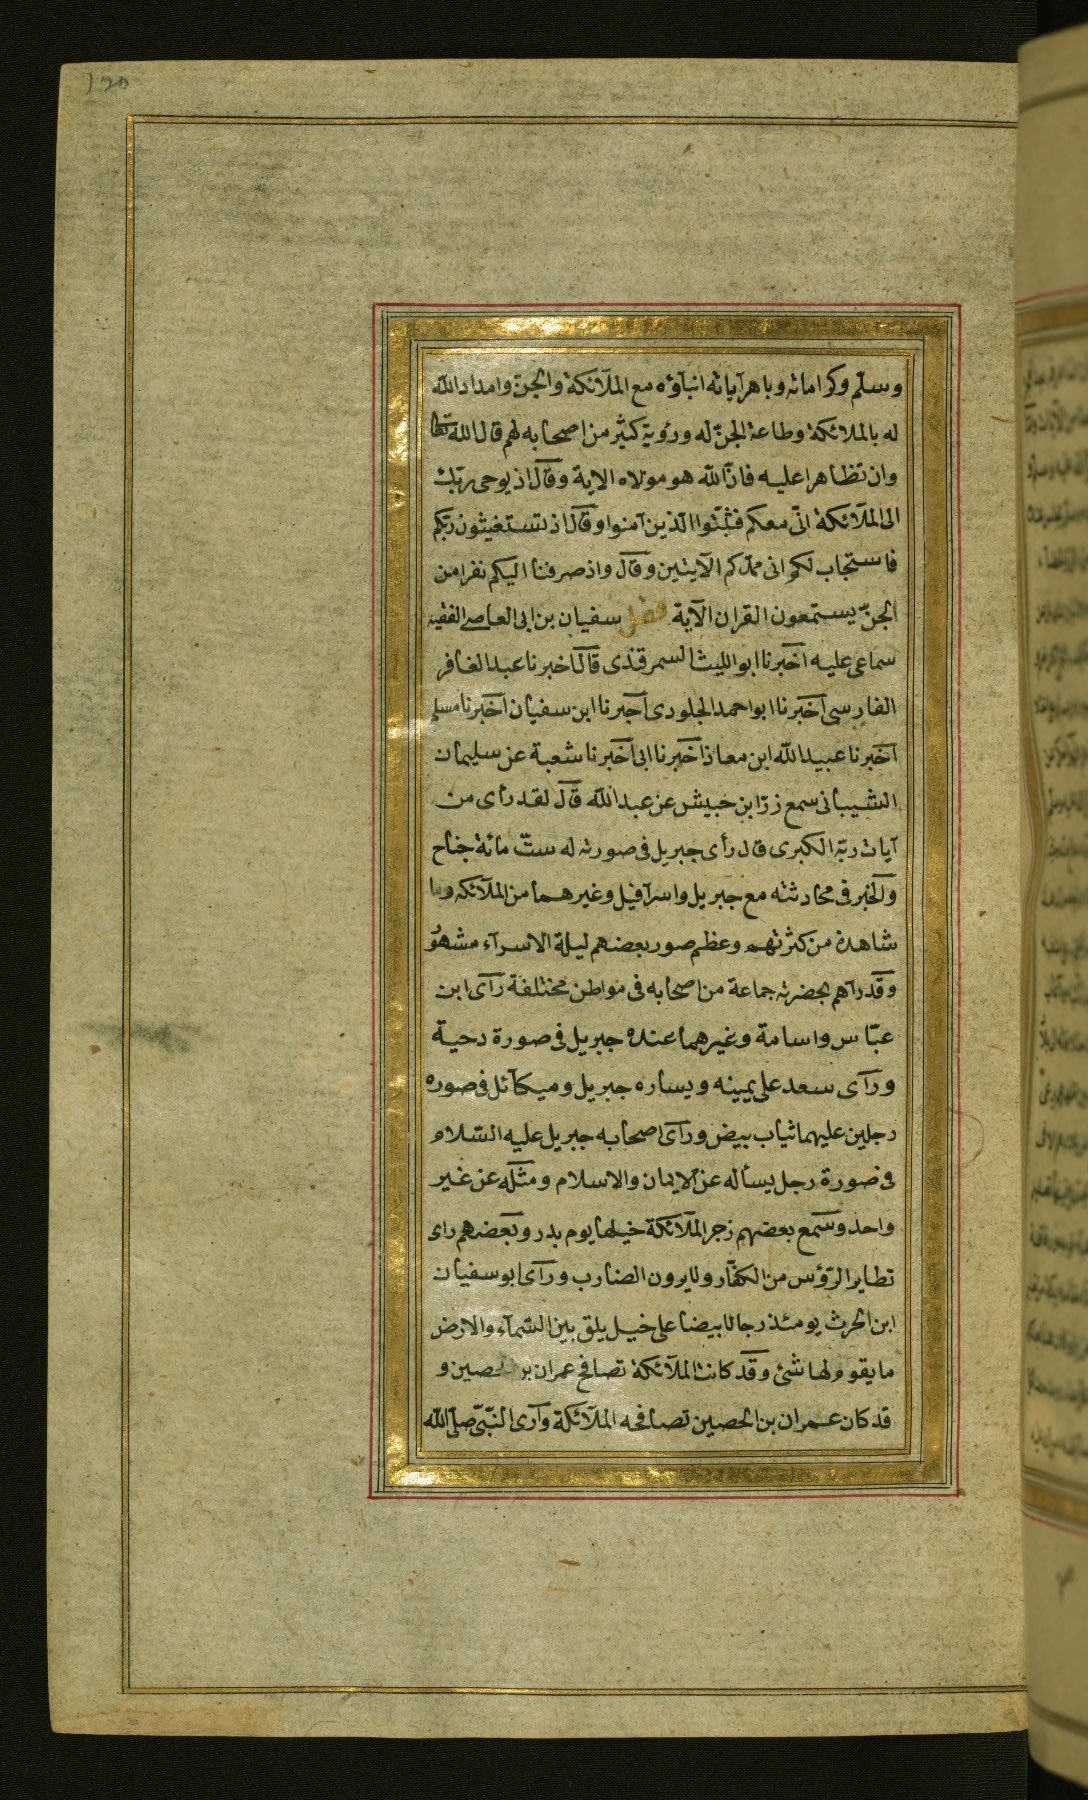 ١٢٥
وسلم وكراماته وباهر آياته انبآؤه مع الملآئكة والجنّ وامداد الله
له بالملائكة وطاعة الجنّ له ورؤية كثير من اصحابه لهم قال الله تعالى
وان تظاهرا عليه فانّ الله هو مولاه الاية وقال اذ يوحى ربّك
الى الملآئكة انّى معكم فثبّتوا الّذين آمنوا وقال اذ تستغيثون ربّكم
فاستجاب لكم انى ممدّكم الآيتين وقال واذ صرفنا اليكم نفرا من
الجنّ يستمعون القران الآية سفيان بن ابى العاصى الفقيه
سماعى عليه اخبرنا ابو الليث السمرقندى قال اخبرنا عبد الغافر
الفارسى آخبرنا ابو احمد الجلودى آخبرنا ابن سفيان آخبرنا مسلم
آخبرنا عبيد الله ابن معاذ آخبرنا ابى آخبرنا شعبة عن سليمان
الشيبانى سمع زرّ ابن حبيش عن عبد الله قال لقد رأى من
آيات ربّه الكبرى قال رأى جبريل فى صورته له ستّ مائة جناح
والخبر فى محادثته مع جبريل واسرآفيل وغيرهما من الملآئكه وما
شاهده من كثرتهم وعظم صور بعضهم ليلة الاسرآء مشهور
وقد رآهم بحضرته جماعة من اصحابه فى مواطن مختلفة رآى ابن
عبّاس واسامة وغيرهما عنده جبريل فى صورة دحية
ورآى سعد على يمينه ويساره جبريل وميكآئل فى صوره
رجلين عليهما ثياب بيض ورآى اصحابه جبريل عليه السّلام
فى صورة رجل يسأله عن الايمان والاسلام ومثله عن غير
واحد وسمع بعضهم زجر الملآئكة خيلها يوم بدر وبعضهم راى
تطاير الرّؤس من الكفّار ولا يرون الضارب ورآى ابو سفيان
ابن الحرث يومئذ رجالا بيضا على خيل بلق بين السّمآء والارض
ما يقوم لها شئ وقد كانت الملآئكة تصافح عمران بن الحصين و
قد كان عمران بن الحصين تصافحه الملآئكة وآرى النّبىّ صلّى الله